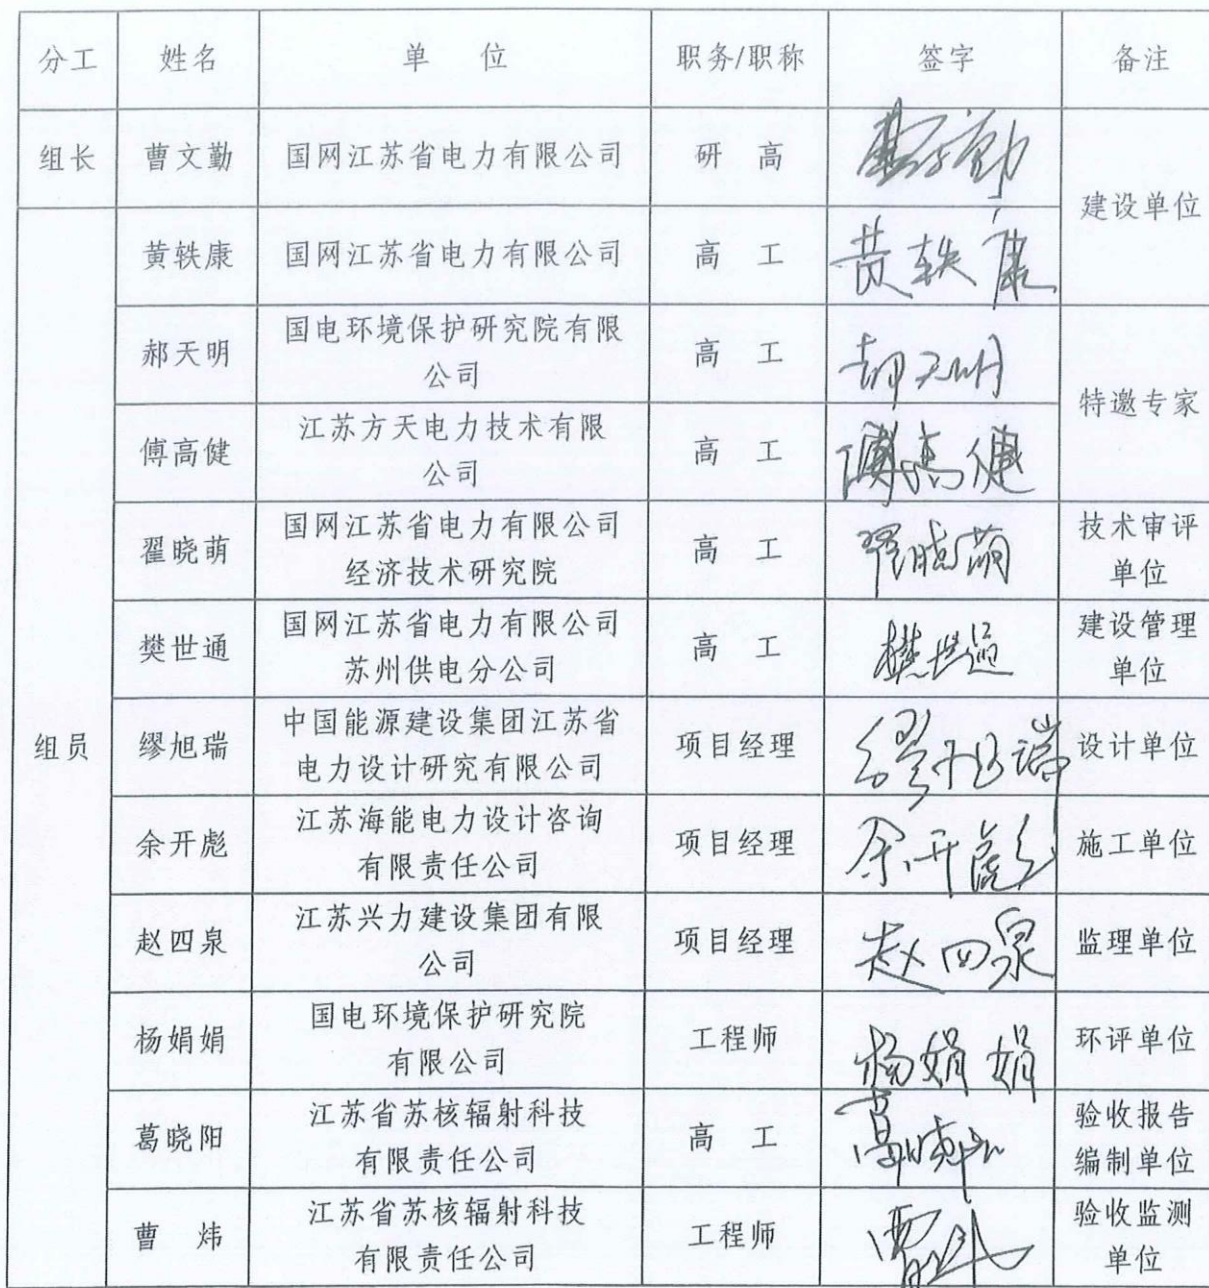 分工 姓名 单 位 职务/职称 签字 备注
组长 曹文勤 国网江苏省电力有限公司 研 高 曹文勤
建设单位
黄轶康 国网江苏省电力有限公司 高 工 黄轶康
郝天明 国电环境保护研究院有限
公司 高 工 郝天明
特邀专家
傅高健 江苏方天电力技术有限
公司 高 工 傅高健
翟晓萌 国网江苏省电力有限公司
经济技术研究院 高 工 翟晓萌 技术审评
单位
樊世通 国网江苏省电力有限公司
苏州供电分公司 高 工 樊世通 建设管理
单位
组员 缪旭瑞 中国能源建设集团江苏省
电力设计研究有限公司 项目经理 缪旭瑞 设计单位
余开彪 江苏海能电力设计咨询
有限责任公司 项目经理 余开彪 施工单位
赵四泉 江苏兴力建设集团有限
公司 项目经理 赵四泉 监理单位
杨娟娟 国电环境保护研究院
有限公司 工程师 杨娟娟 环评单位
葛晓阳 江苏省苏核辐射科技
有限责任公司 高 工 葛晓阳 验收报告
编制单位
曹 炜 江苏省苏核辐射科技
有限责任公司 工程师 曹炜 验收监测
单位